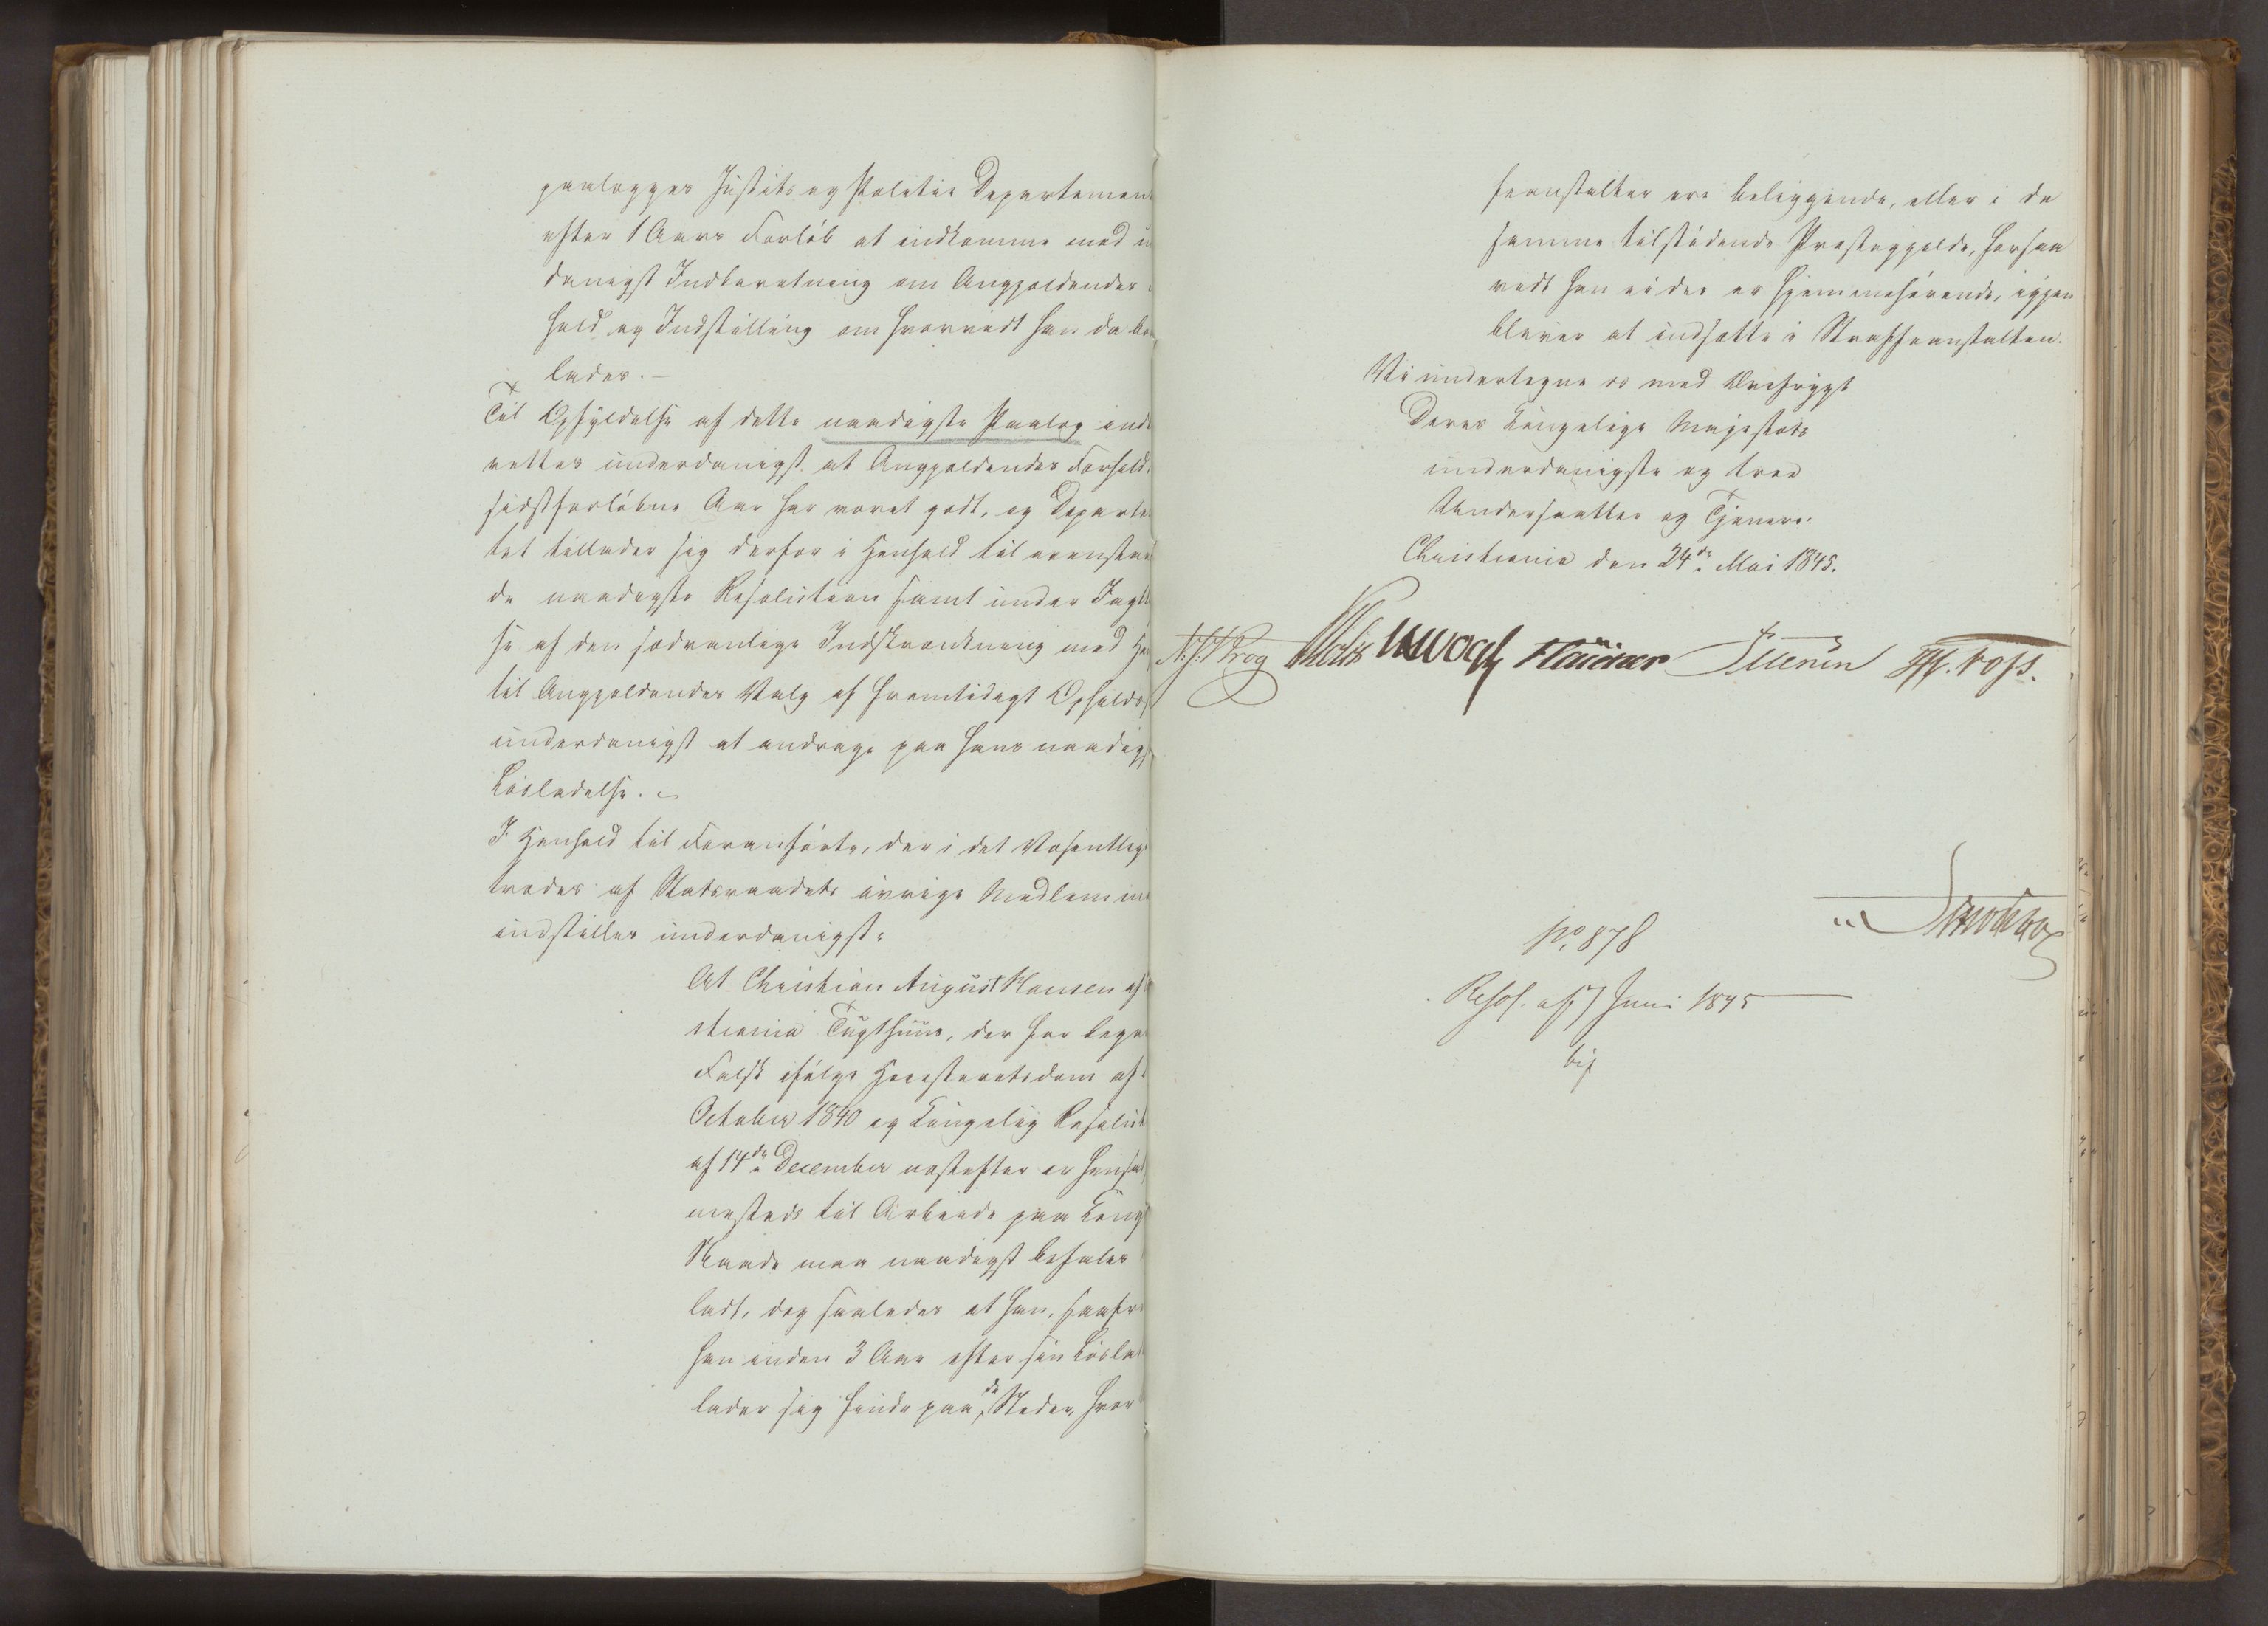 paalægges Justits og Politie Departemen
efter 1 Aars Forløb at indkomme med u
danigst Indberetning om Angjældendes
hold og Indstilling om hvorvidt han da bør
lades.-
Til Opfyldelse af dette naadigste Paalæg ind
rettes underdanigst at Angjældendes Forhold
sidstforløbne Aar har været godt, og Departe
tet tillader sig derfor i Henhold til ovenstaa
de naadigste Resolution samt under Iagtt
se af den sædvanlige Indskrænkning med Hen
til Angjældendes Valg af fremtidigt Opholds
underdanigst at andrage paa hans naadig
Løsladelse.
I Henhold til Foranførte, der i det Væsentlig
trædes af Statsraadets øvrige Medlemme
indstilles underdanigst:
At Christian August Hansen af
stiania Tugthuus, der for begaa
Falsk ifølge Høiesteretsdom af
October 1840 og Kongelig Resolut
af 14de December næstefter er hensat
mesteds til Arbeide paa Kong
Naade maa naadigst befales
ladt, dog saaledes at han, saafre
han inden 3 Aar efter sin Løsla
lader sig finde paa de Steder, hvor
feanstalter ere beliggende, eller i de
samme tilstødende Præstegjelde, forsaa
vidt han ei der er hjemmehørende, igjen
bliver at indsætte i Straffeanstalten.
Vi undertegne os med Ærefrygt
Deres Kongelige Majestæts
underdanigste og troe
Undersaatter og Tjenere.
Christiania den 24de Mai 1845.
N. J. Krog Holst Vogt
No. 878
Resol. af 7 Juni 1845
bif